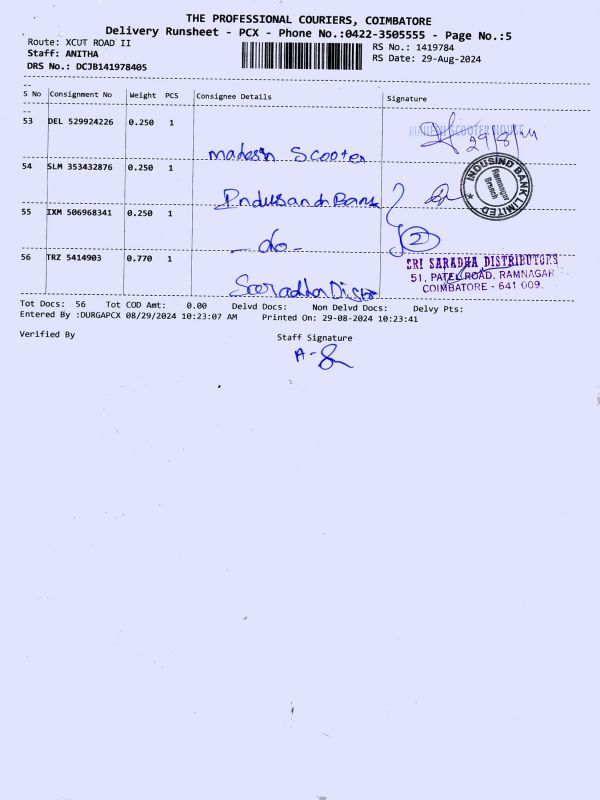 THE PROFESSIONAL COURIERS, COIMBATORE
Delivery Runsheet - PCX - Phone No.:0422-3505555 - Page No.:5
Route: XCUT ROAD II
RS No.: 1419784
Staff: ANITHA
RS Date: 29-Aug-2024
DRS No.: DCJB141978405
S No Consignment No Weight PCS Consignee Details Signature
53 DEL 529924226 0.250 1
29/8/24
mahesh Scooter
54 SLM 353432876 0.250 1
INDUSIND BANK LIMITED
Ramnagar Branch
Indusand Bank
55 IXM 506968341 0.250 1
- do -
2
56 TRZ 5414903 0.770 1
SRI SARADHA DISTRIBUTORS
51, PATEL ROAD, RAMNAGAR
COIMBATORE - 641 009.
Saradha Distr
Tot Docs: 56 Tot COD Amt: 0.00 Delvd Docs: Non Delvd Docs: Delvy Pts:
Entered By :DURGAPCX 08/29/2024 10:23:07 AM Printed On: 29-08-2024 10:23:41
Verified By Staff Signature